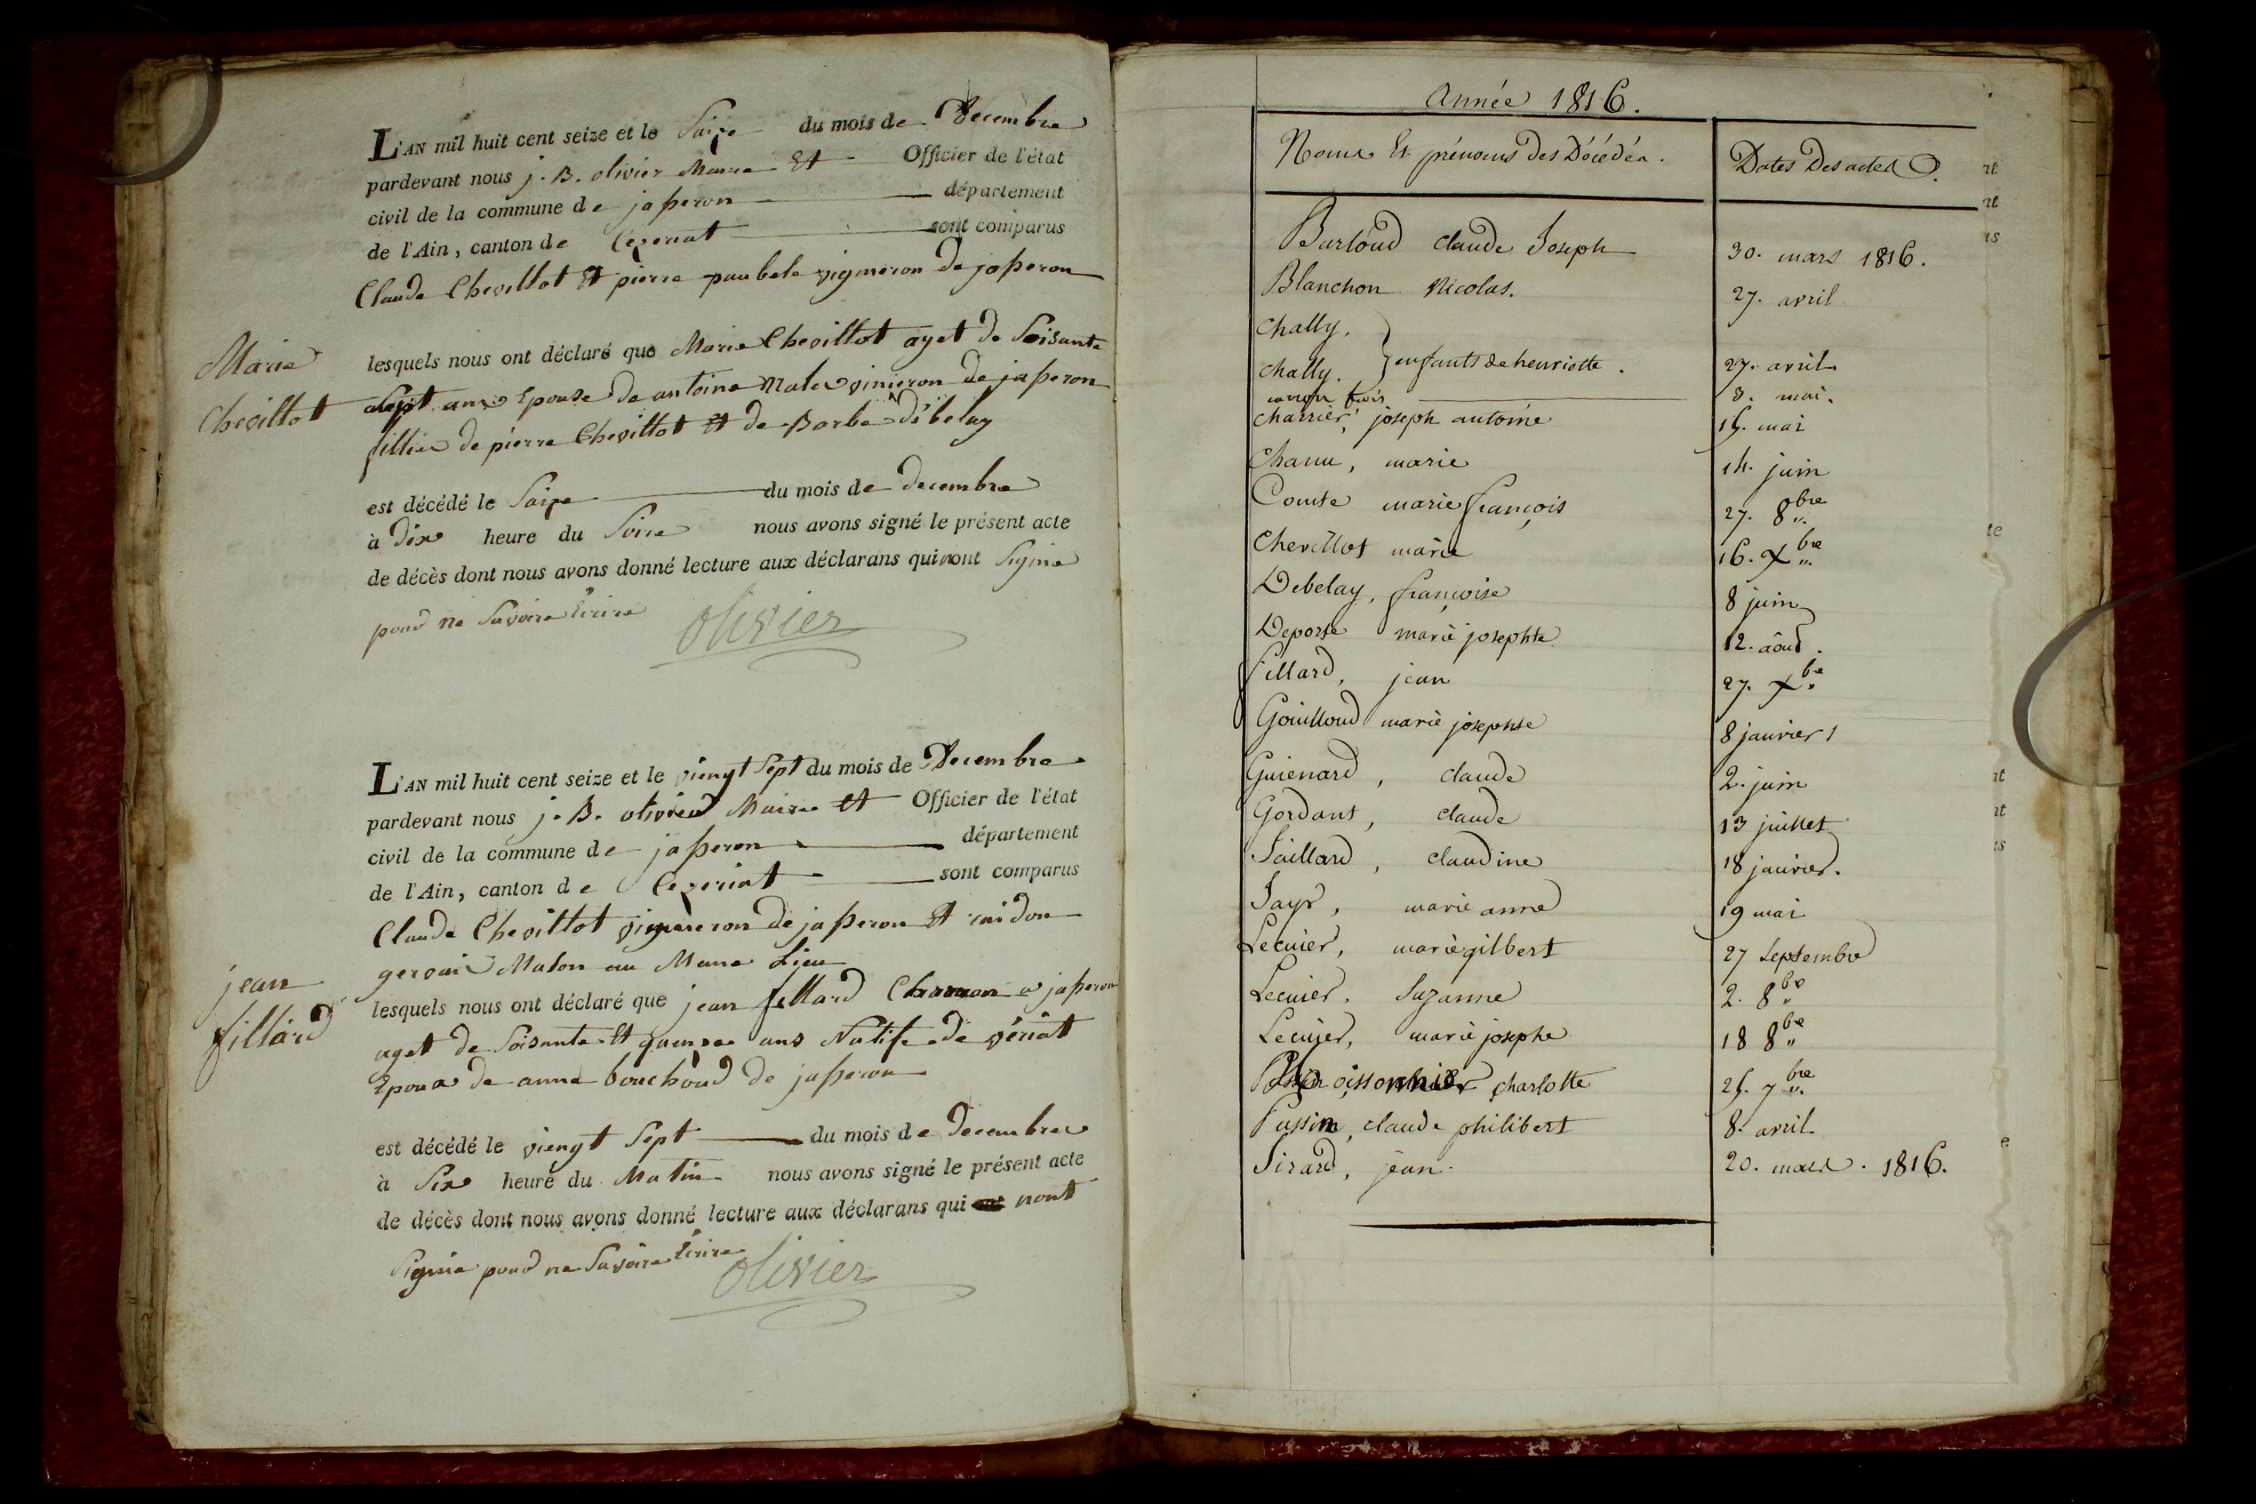 L'AN mil huit cent seize et le Saize du mois de Decembre
pardevant nous j. B. olivier Maire Et Officier de l'état
civil de la commune de jasseron département
de l'Ain, canton de Cezeriat sont comparus
Claude Chevillot Et pierre paubele vigneron de jasseron
Marie
Chevillot
lesquels nous ont déclaré que Marie Chevillot aget de Soisante
Sept ans Epouse de antoine vinieron de jasseron
fillie de pierre Chevillot Et de Barbe débelay
est décédé le Saize du mois de decembre
à dix heure du Soire nous avons signé le présent acte
de décès dont nous avons donné lecture aux déclarans qui nont Signie
pour ne Savoire Ecrire
olivier
L'AN mil huit cent seize et le viengt Sept du mois de Decembre
pardevant nous j. B. olivier Maire Et Officier de l'état
civil de la commune de jasseron département
de l'Ain, canton de Cezeriat sont comparus
Claude Chevillot vigneron de jasseron Et
gervais Maton au Meme Lieu
jean
fillard
lesquels nous ont déclaré que jean fillard a jasseron
aget de Soisante Et quinze ans Natife de vériat
Epoux de anne bouchoud de jasseron
est décédé le viengt Sept du mois de Decembre
à Six heure du Matin nous avons signé le présent acte
de décès dont nous avons donné lecture aux déclarans qui nont
Signie pour ne Savoire Ecrire
olivier
Année 1816.
Noms Et prénoms Des Décédés. Dates Des actes.
Barloud claude Joseph 30. mars 1816.
Blanchon Nicolas. 27. avril
Chally. } enfants de henriotte.
Chally. 27. avril
8. mai.
Charrier, joseph antoine 15. mai
Chanu, marie 14. juin
Comte marie françois 27. 8bre
Chevillot marie 16. Xbre
Debelay, françoise 8 juin
Deporte marie josephte 12. août.
fillard, jean 27. Xbre
Gouilloud marie josephte 8 janvier
Guienard, claude 2. juin
Gordant, claude 13 juillet
Jaillard, claudine 18 janvier.
Jayr, marie anne 19 mai
Lecuier, marie gilbert 27 Septembre
Lecuier. Suzanne 2. 8bre
Lecuier, marie josephe 18 8bre
charlotte 25. 7bre
Pussin, claude philibert 8. avril
Sirard, jean. 20. mars. 1816.